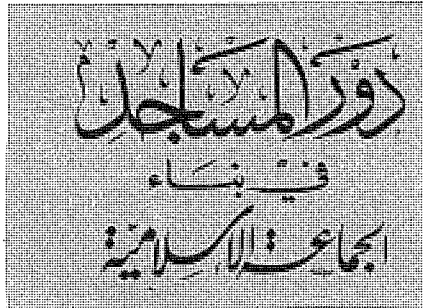 دَوْرُ المَسَاجِدِ
في بناء
الجماعة الإسلامية